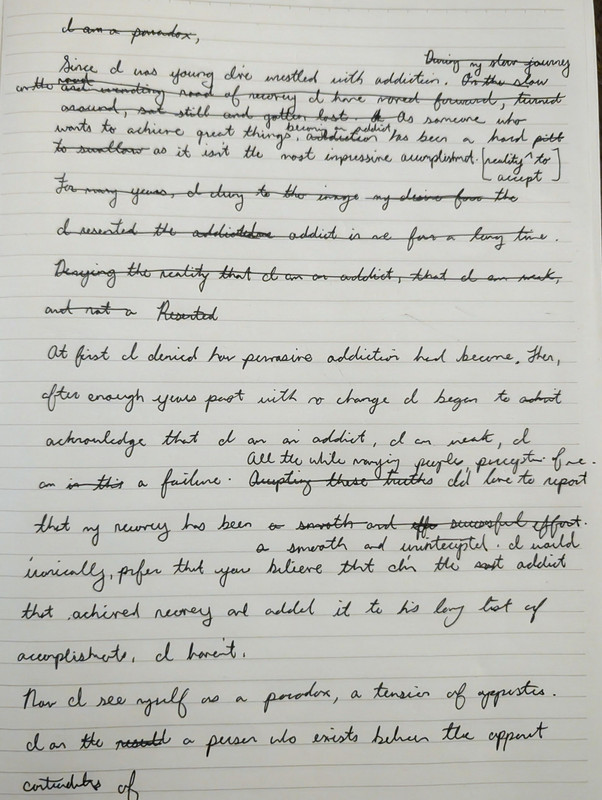 I am a paradox,
During my slow journey
Since I was young I've wrestled with addiction. On the slow
road
on the and winding road of recovery I have moved forward, turned
around, sat still and gotten lost. As someone who
becoming an addict
wants to achieve great things, addiction has been a hard pill
to swallow as it isn't the most impressive accomplishment. [reality to
accept]
For many years, I clung to the image my desire for the
I resented the addict in me for a long time.
Denying the reality that I am an addict, that I am weak,
and not a Resented
At first I denied how pervasive addiction had become. Then,
after enough years past with no change I began to admit
acknowledge that I am an addict, I am weak, I
All the while managing people's perception of me.
am in this a failure. Accepting these truths I'd love to report
that my recovery has been a smooth and successful effort.
a smooth and uninterrupted. I would
ironically, prefer that you believe that I'm the addict
that achieved recovery and added it to his long list of
accomplishments. I haven't.
Now I see myself as a paradox, a tension of opposites.
I am the result a person who exists between the apparent
contradictions of